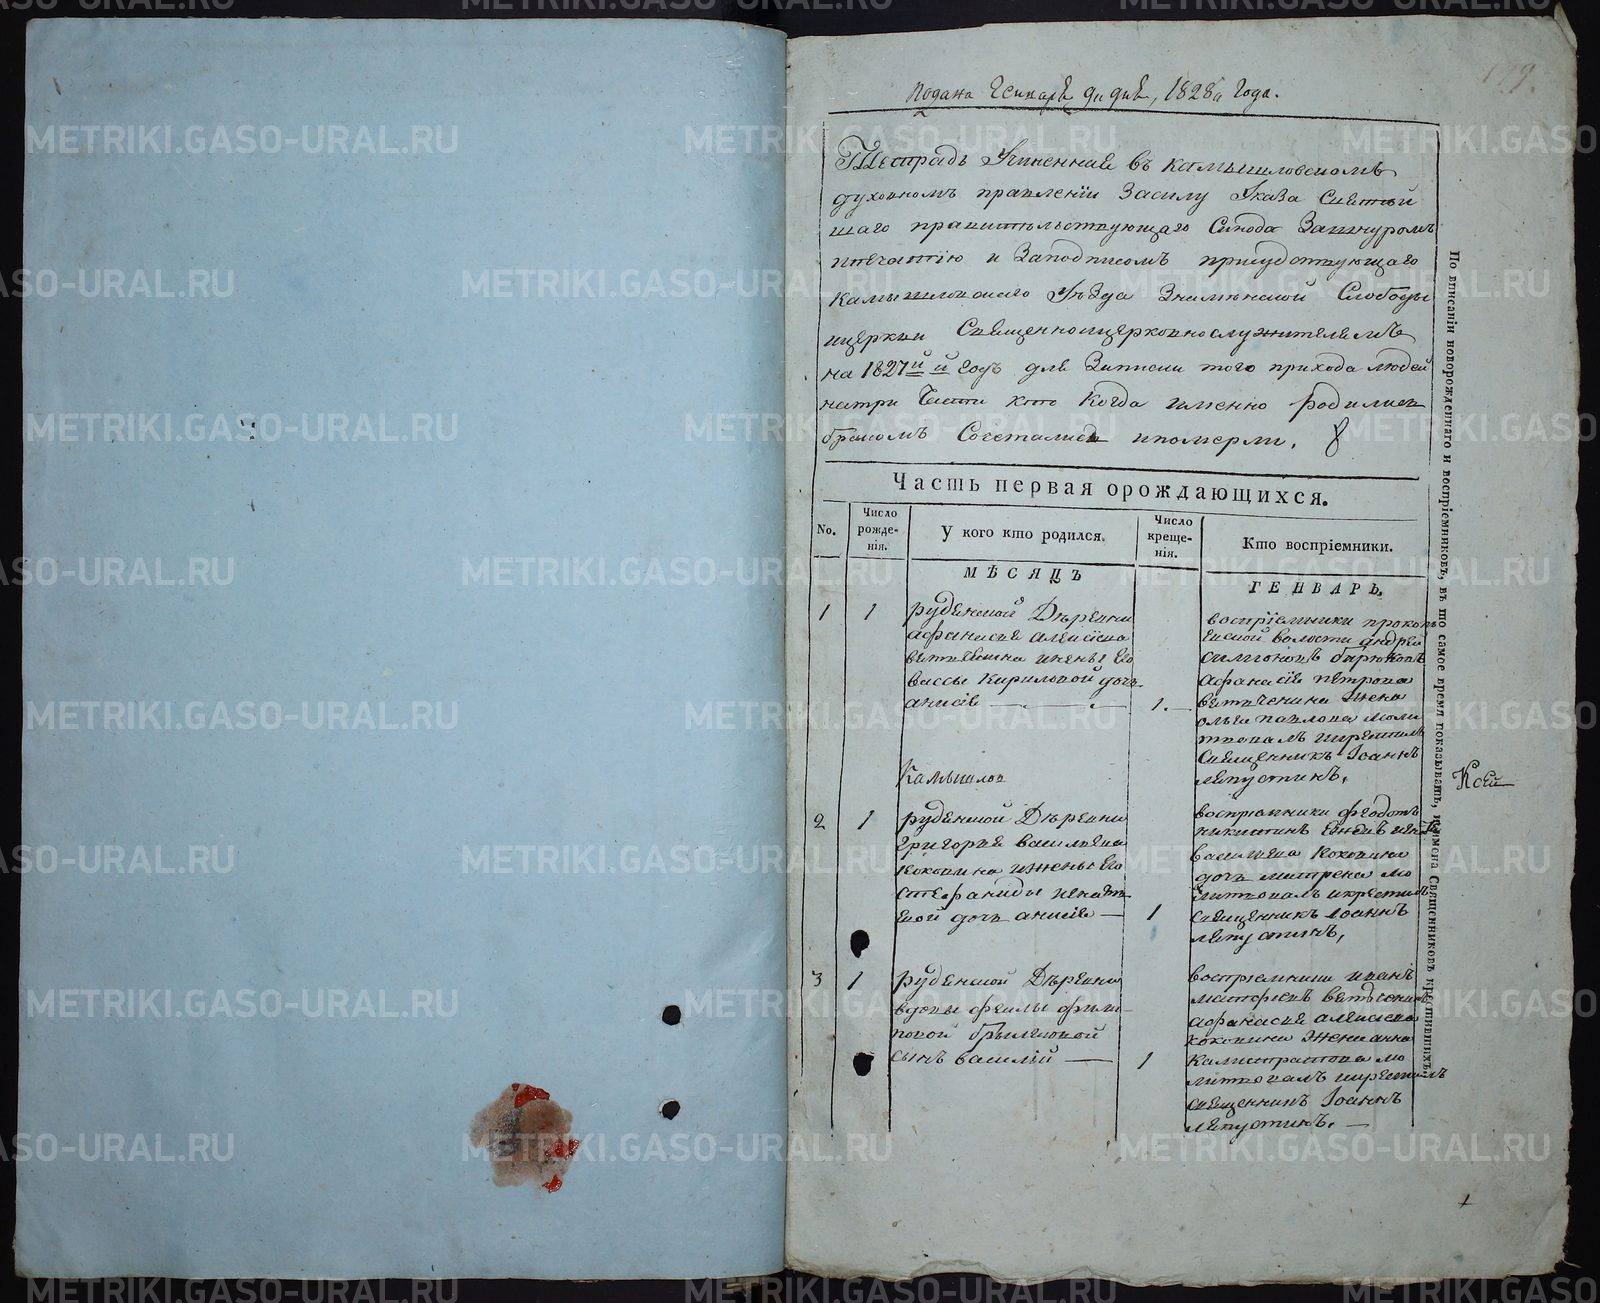 Подана Генваря 9го дня, 1828го Года.
Тетрадь Учиненная въ Камышловскомъ
духовномъ правленіи Засилу Указа Святѣй
шаго правительствующаго Сѵнода Зашнуромъ
ипечатію и Заподписомъ присудствующаго
Камышловскаго Уѣзда Знаменской Слободы
ицеркви Священноицерковнослужителямъ
на 1827й й Годъ для Записки того прихода людей
натри Части кто Когда имянно родились
бракомъ Сочетались ипомерли.
Часть первая орождающихся.
No.
Число рожденія.
У кого кто родился.
Число крещенія.
Кто воспріемники.
МѢСЯЦЪ
ГЕНВАРЬ.
1
1
руденской Дѣревни
афанасья алексѣева
ветчинина ижены Его
вассы Кириловой дочь
анисія
1.
воспріемники прокопь
евской волости андрей
симионовъ бирюковъ
афанасія петрова
ветчинина Жена
ольга павлова моли
твовалъ икрестилъ
Священникъ Іоаннъ
ляпустинъ.
Камышлов
2
1
руденской Дѣревни
Григорья васильева
Коковина ижены Его
Стефаниды игнатъ
евой дочь анисія
1
воспріемники федотъ
никитинъ
васильева Коковина
дочь матрена мо
литвовалъ икрестилъ
Священникъ Іоаннъ
ляпустинъ,
3
1
руденской Дѣревни
вдовы феклы фили
повой брылиновой
Сынъ василій
1
воспріемники иванъ
матфеевъ
афанасья алексѣева
коковина Жена анна
Калистратова мо
литвовалъ икрестилъ
Священникъ Іоаннъ
ляпустинъ.
По вписаніи новорожденнаго и воспріемниковъ, въ то самое время показывать, имена Священниковъ крестившихъ.
Ксей
METRIKI.GASO-URAL.RU